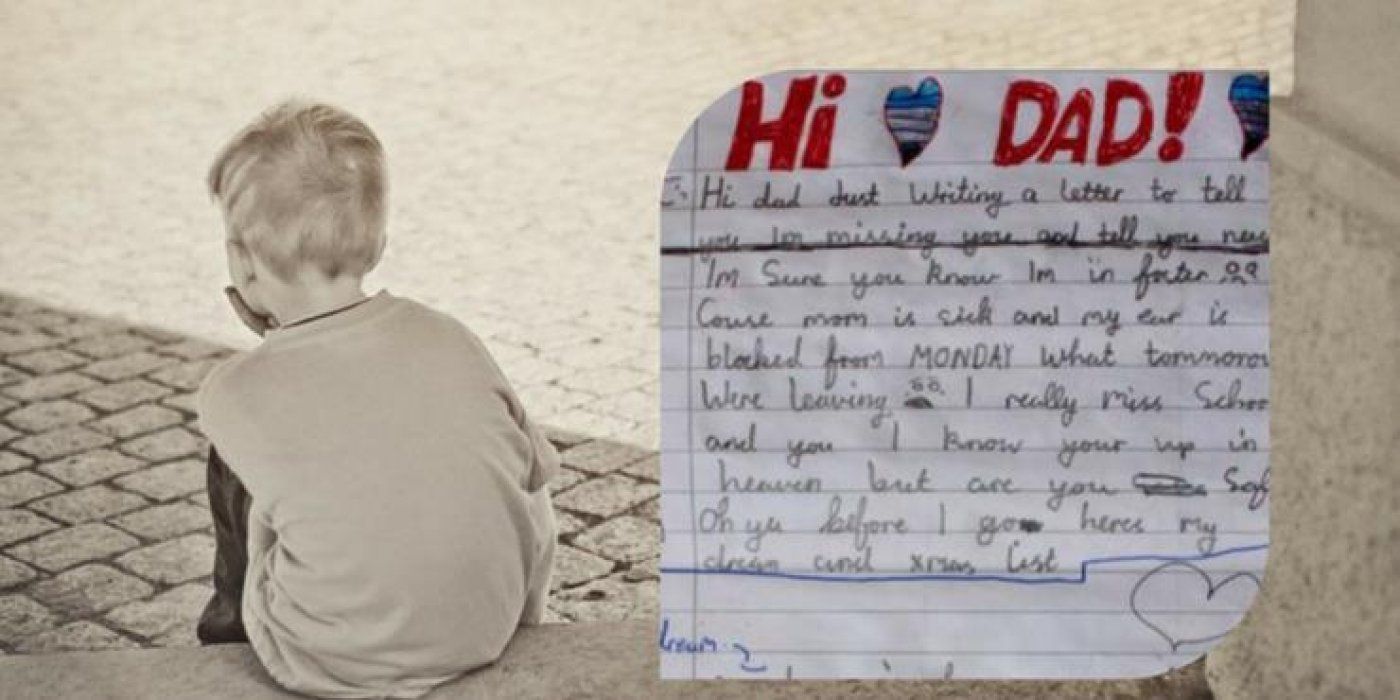 Hi DAD!
Hi dad Just Writing a letter to tell
you Im missing you and tell you
Im Sure you know Im in foster
Couse mom is sick and my ear is
blocked from MONDAY what
Were leaving I really miss
and you I know your up in
heaven but are you
Oh ye before I go heres my
dream and xmas List